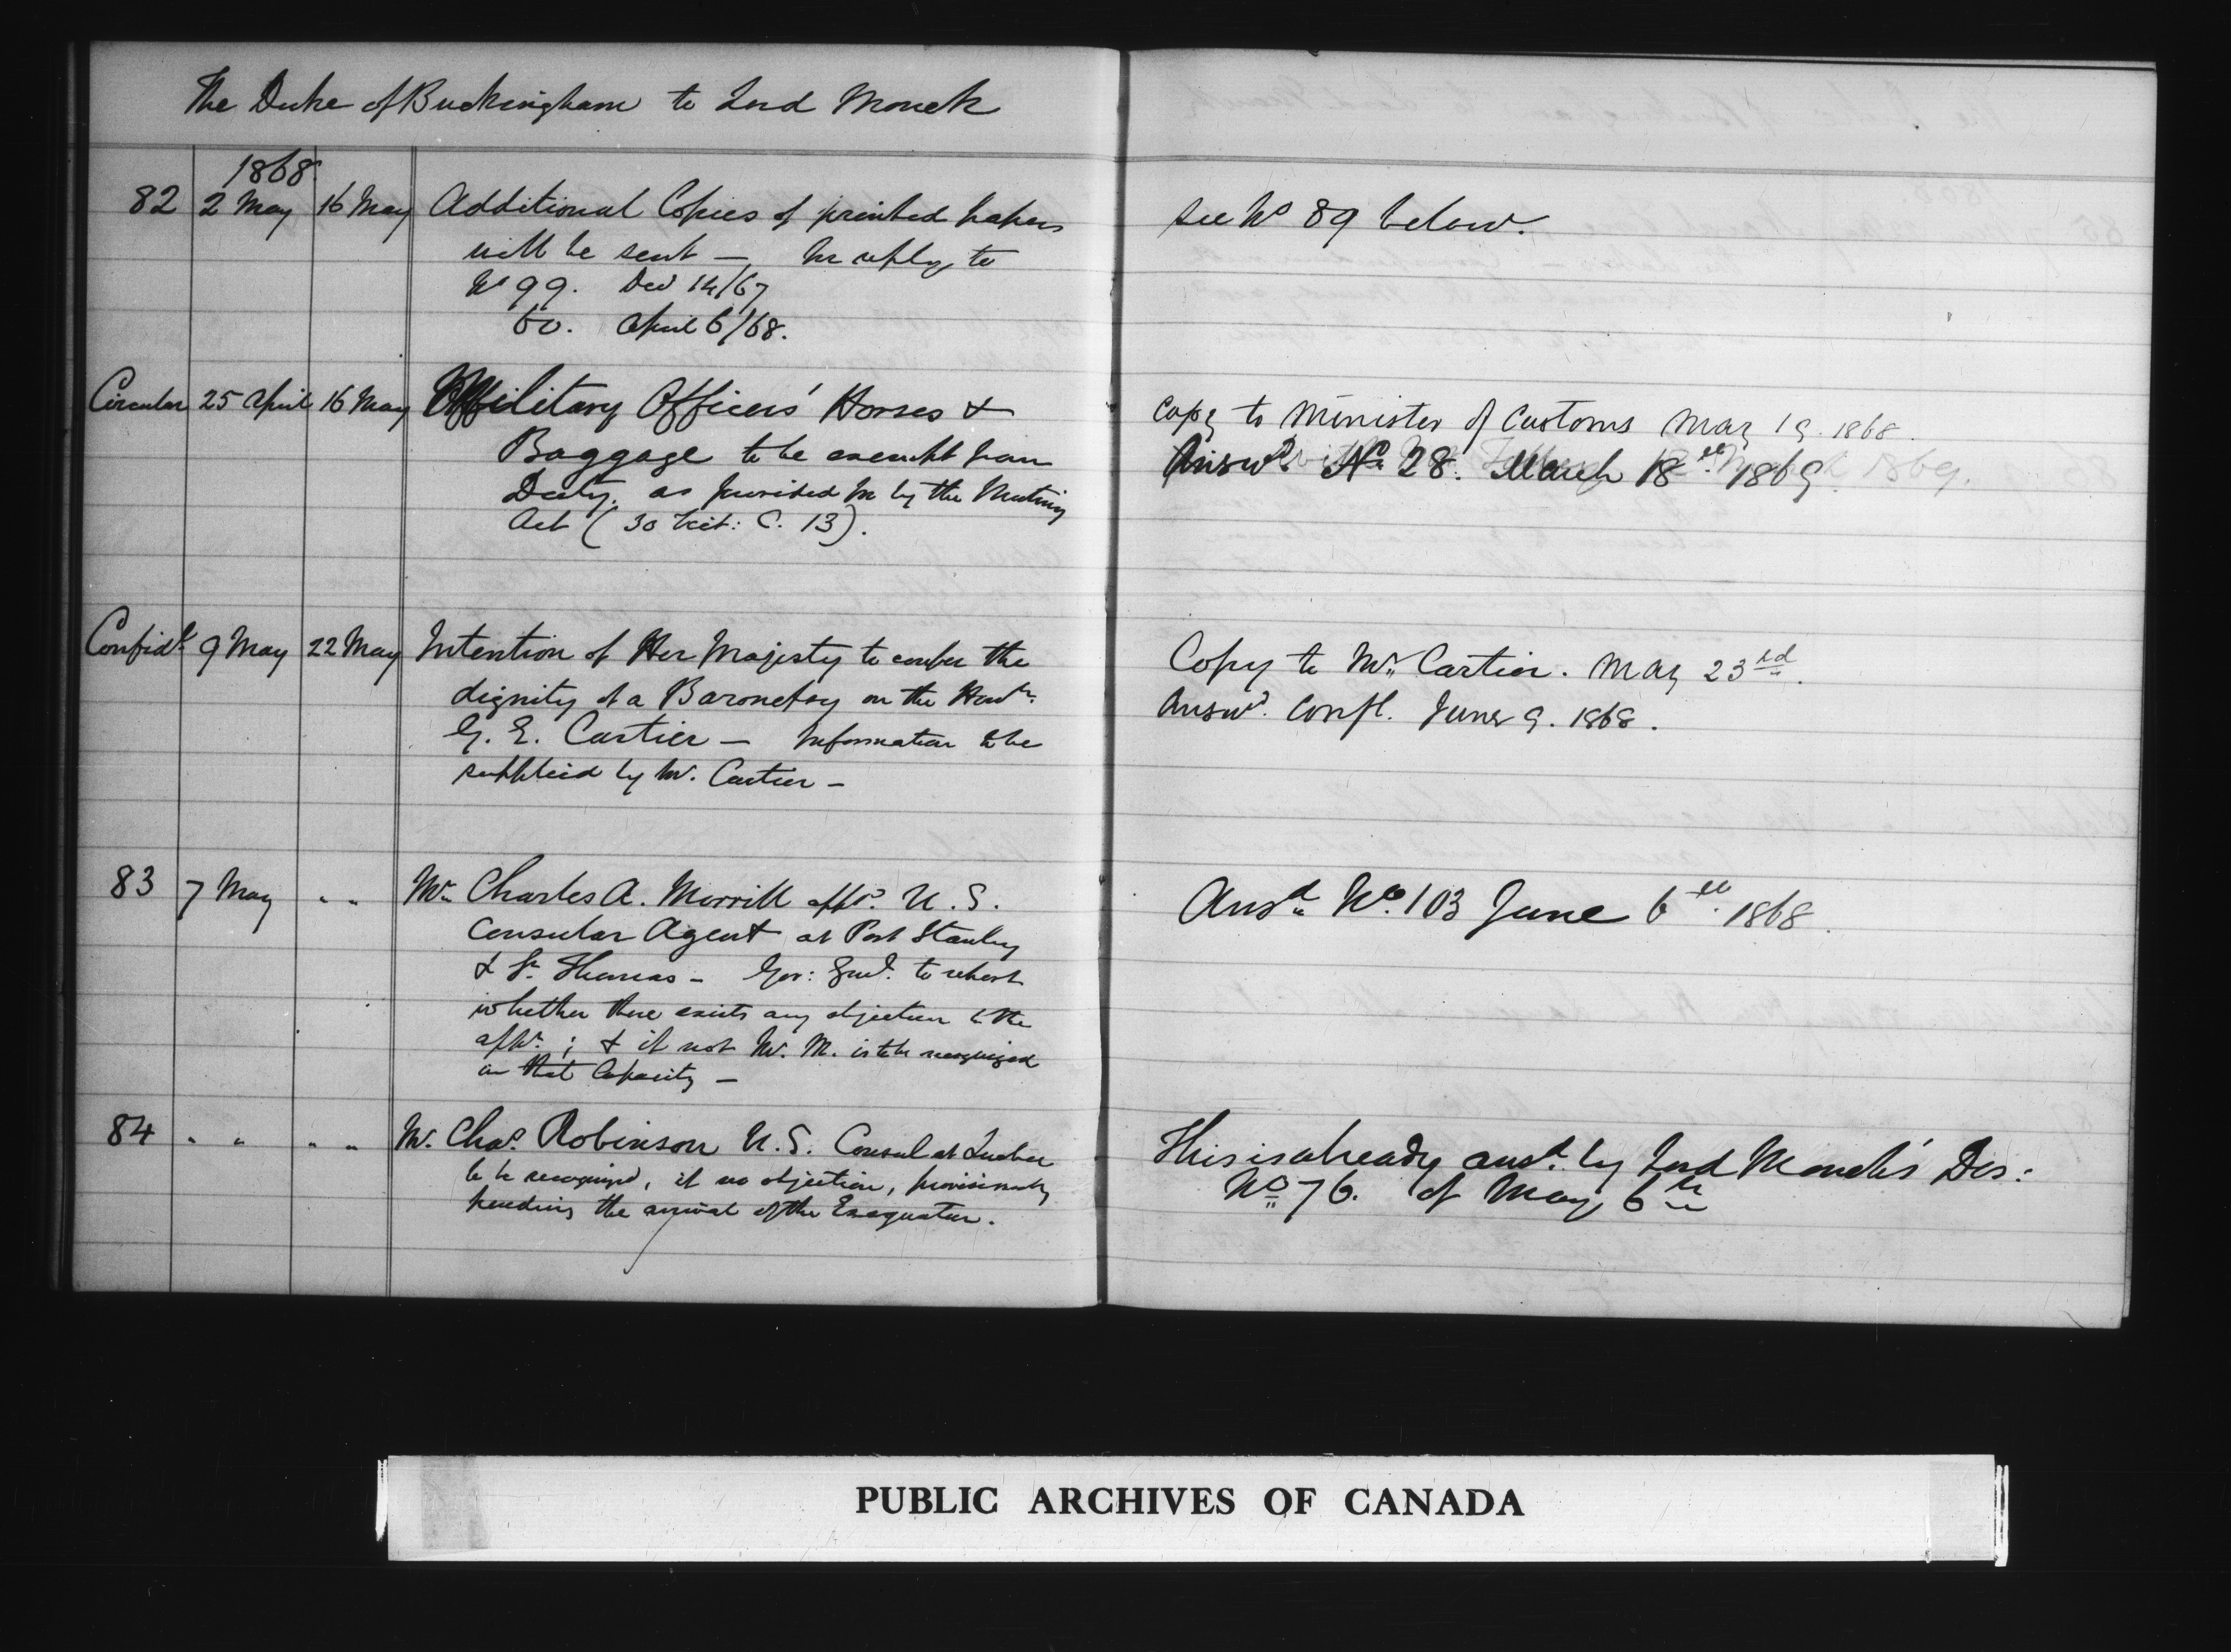 The Duke of Buckingham to Lord Monck
1868
82 2 May 16 May Additional Copies of printed papers see No 89 below.
will be sent — In reply to
No 99. Decr 14/67
60. April 6/68.
Circular 25 April 16 May Military Officers' Horses & Copy to Minister of Customs May 19. 1868.
Baggage to be exempt from Answd No 28. March 18th 1869.
Duty. as provided for by the Mutiny
Act (30 Vict: C. 13).
Confidl 9 May 22 May Intention of Her Majesty to confer the Copy to Mr. Cartier. May 23rd.
dignity of a Baronetcy on the Honble. Answd. Confl. June 9. 1868.
G. E. Cartier — Information to be
supplied by Mr. Cartier —
83 7 May " " Mr Charles A. Morrill appd. U. S. Ansd No. 103 June 6th. 1868.
Consular Agent at Port Stanley
& St. Thomas — Gov: Genl. to report
whether there exists any objection to the
appt. ; & if not Mr. M. is to be recognized
in that Capacity —
84 " " " " Mr. Chas. Robinson U. S. Consul at Quebec This is already ansd. by Lord Monck's Des:
to be recognized, if no objection, provisionally No 76. of May 6th
pending the arrival of the Exequatur.
PUBLIC ARCHIVES OF CANADA